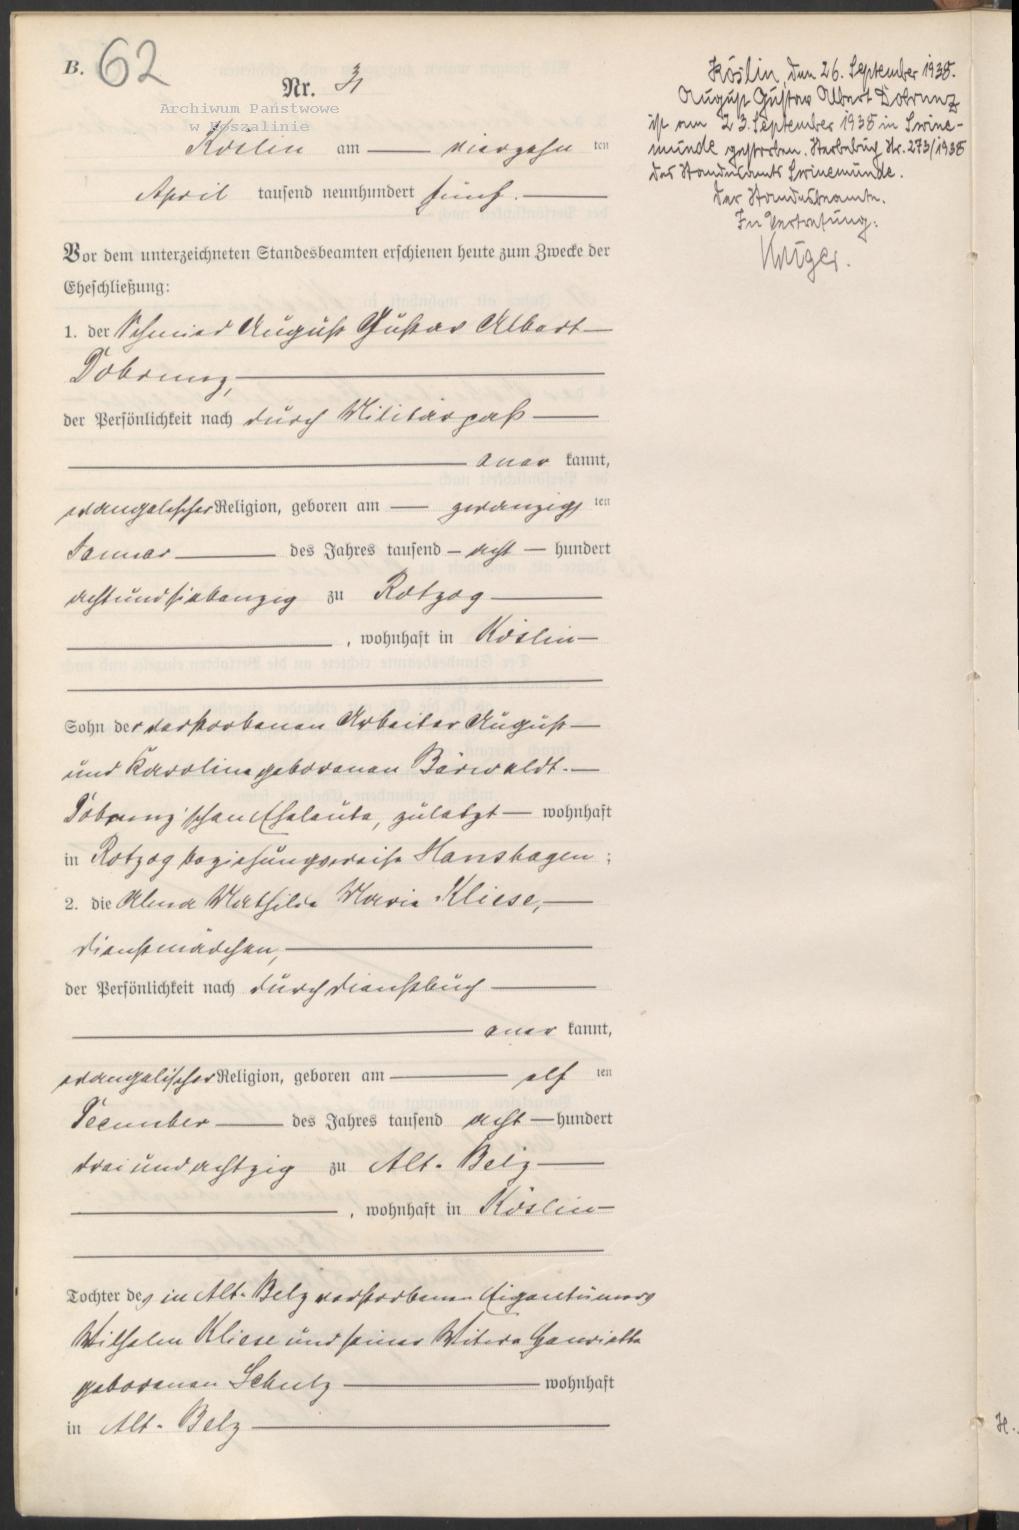 B. 62
Nr. 31
Archiwum Państwowe
w Koszalinie
Köslin am vierzehn ten
April tausend neunhundert fünf.
Vor dem unterzeichneten Standesbeamten erschienen heute zum Zwecke der
Eheschließung:
1. der Schmied August Gustav Albert
Dobrunz,
der Persönlichkeit nach durch Militärpaß
aner kannt,
evangelischer Religion, geboren am zwanzigs ten
Januar des Jahres tausend acht hundert
achtundsiebenzig zu Rotzog
, wohnhaft in Köslin
Sohn der verstorbenen Arbeiter August
und Karoline geborenen Bärwaldt-
Dobrunz'schen Eheleute, zuletzt wohnhaft
in Rotzog beziehungsweise Hanshagen ;
2. die Alma Mathilde Marie Kliese,
Dienstmädchen,
der Persönlichkeit nach durch Dienstbuch
aner kannt,
evangelischer Religion, geboren am elf ten
December des Jahres tausend acht hundert
dreiundachtzig zu Alt-Belz
, wohnhaft in Köslin
Tochter des in Alt-Belz verstorbenen Eigentümers
Wilhelm Kliese und seiner Witwe Henriette
geborenen Schulz wohnhaft
in Alt-Belz
Köslin, den 26. September 1935.
August Gustav Albert Dobrunz
ist am 23. September 1935 in Swine-
münde gestorben. Sterbebuch Nr. 273/1935
des Standesamts Swinemünde.
Der Standesbeamte.
In Vertretung:
Krüger.
H.